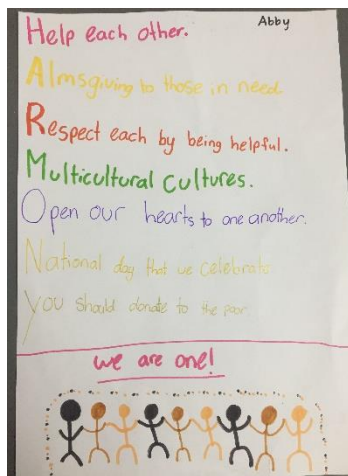 Abby
Help each other.
Almsgiving to those in need.
Respect each by being helpful.
Multicultural cultures.
Open our hearts to one another.
National day that we celebrate
you should donate to the poor
we are one!